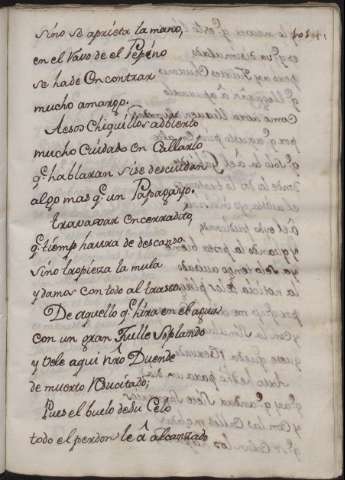 sino se aprieta la mano,
en el Vavo de el Pepino
se hade Encontrar
mucho amargo.
Aesos Chiquillos adbierto
mucho Cuidado en Callarlo
q.e hablaran sise descuidan
algo mas q.e un Papagayo.
travaxar en cerradito,
q.e tiemp havra de descanso
sino tropieza la mula
y damos con todo al traste.
De aquello q.e hira en el agua
con un gran Fuelle soplando
y vele aqui vr̃o Duende
de muerto resucitado;
Pues el buelo de su Celo
todo el perdon le â alcanzado